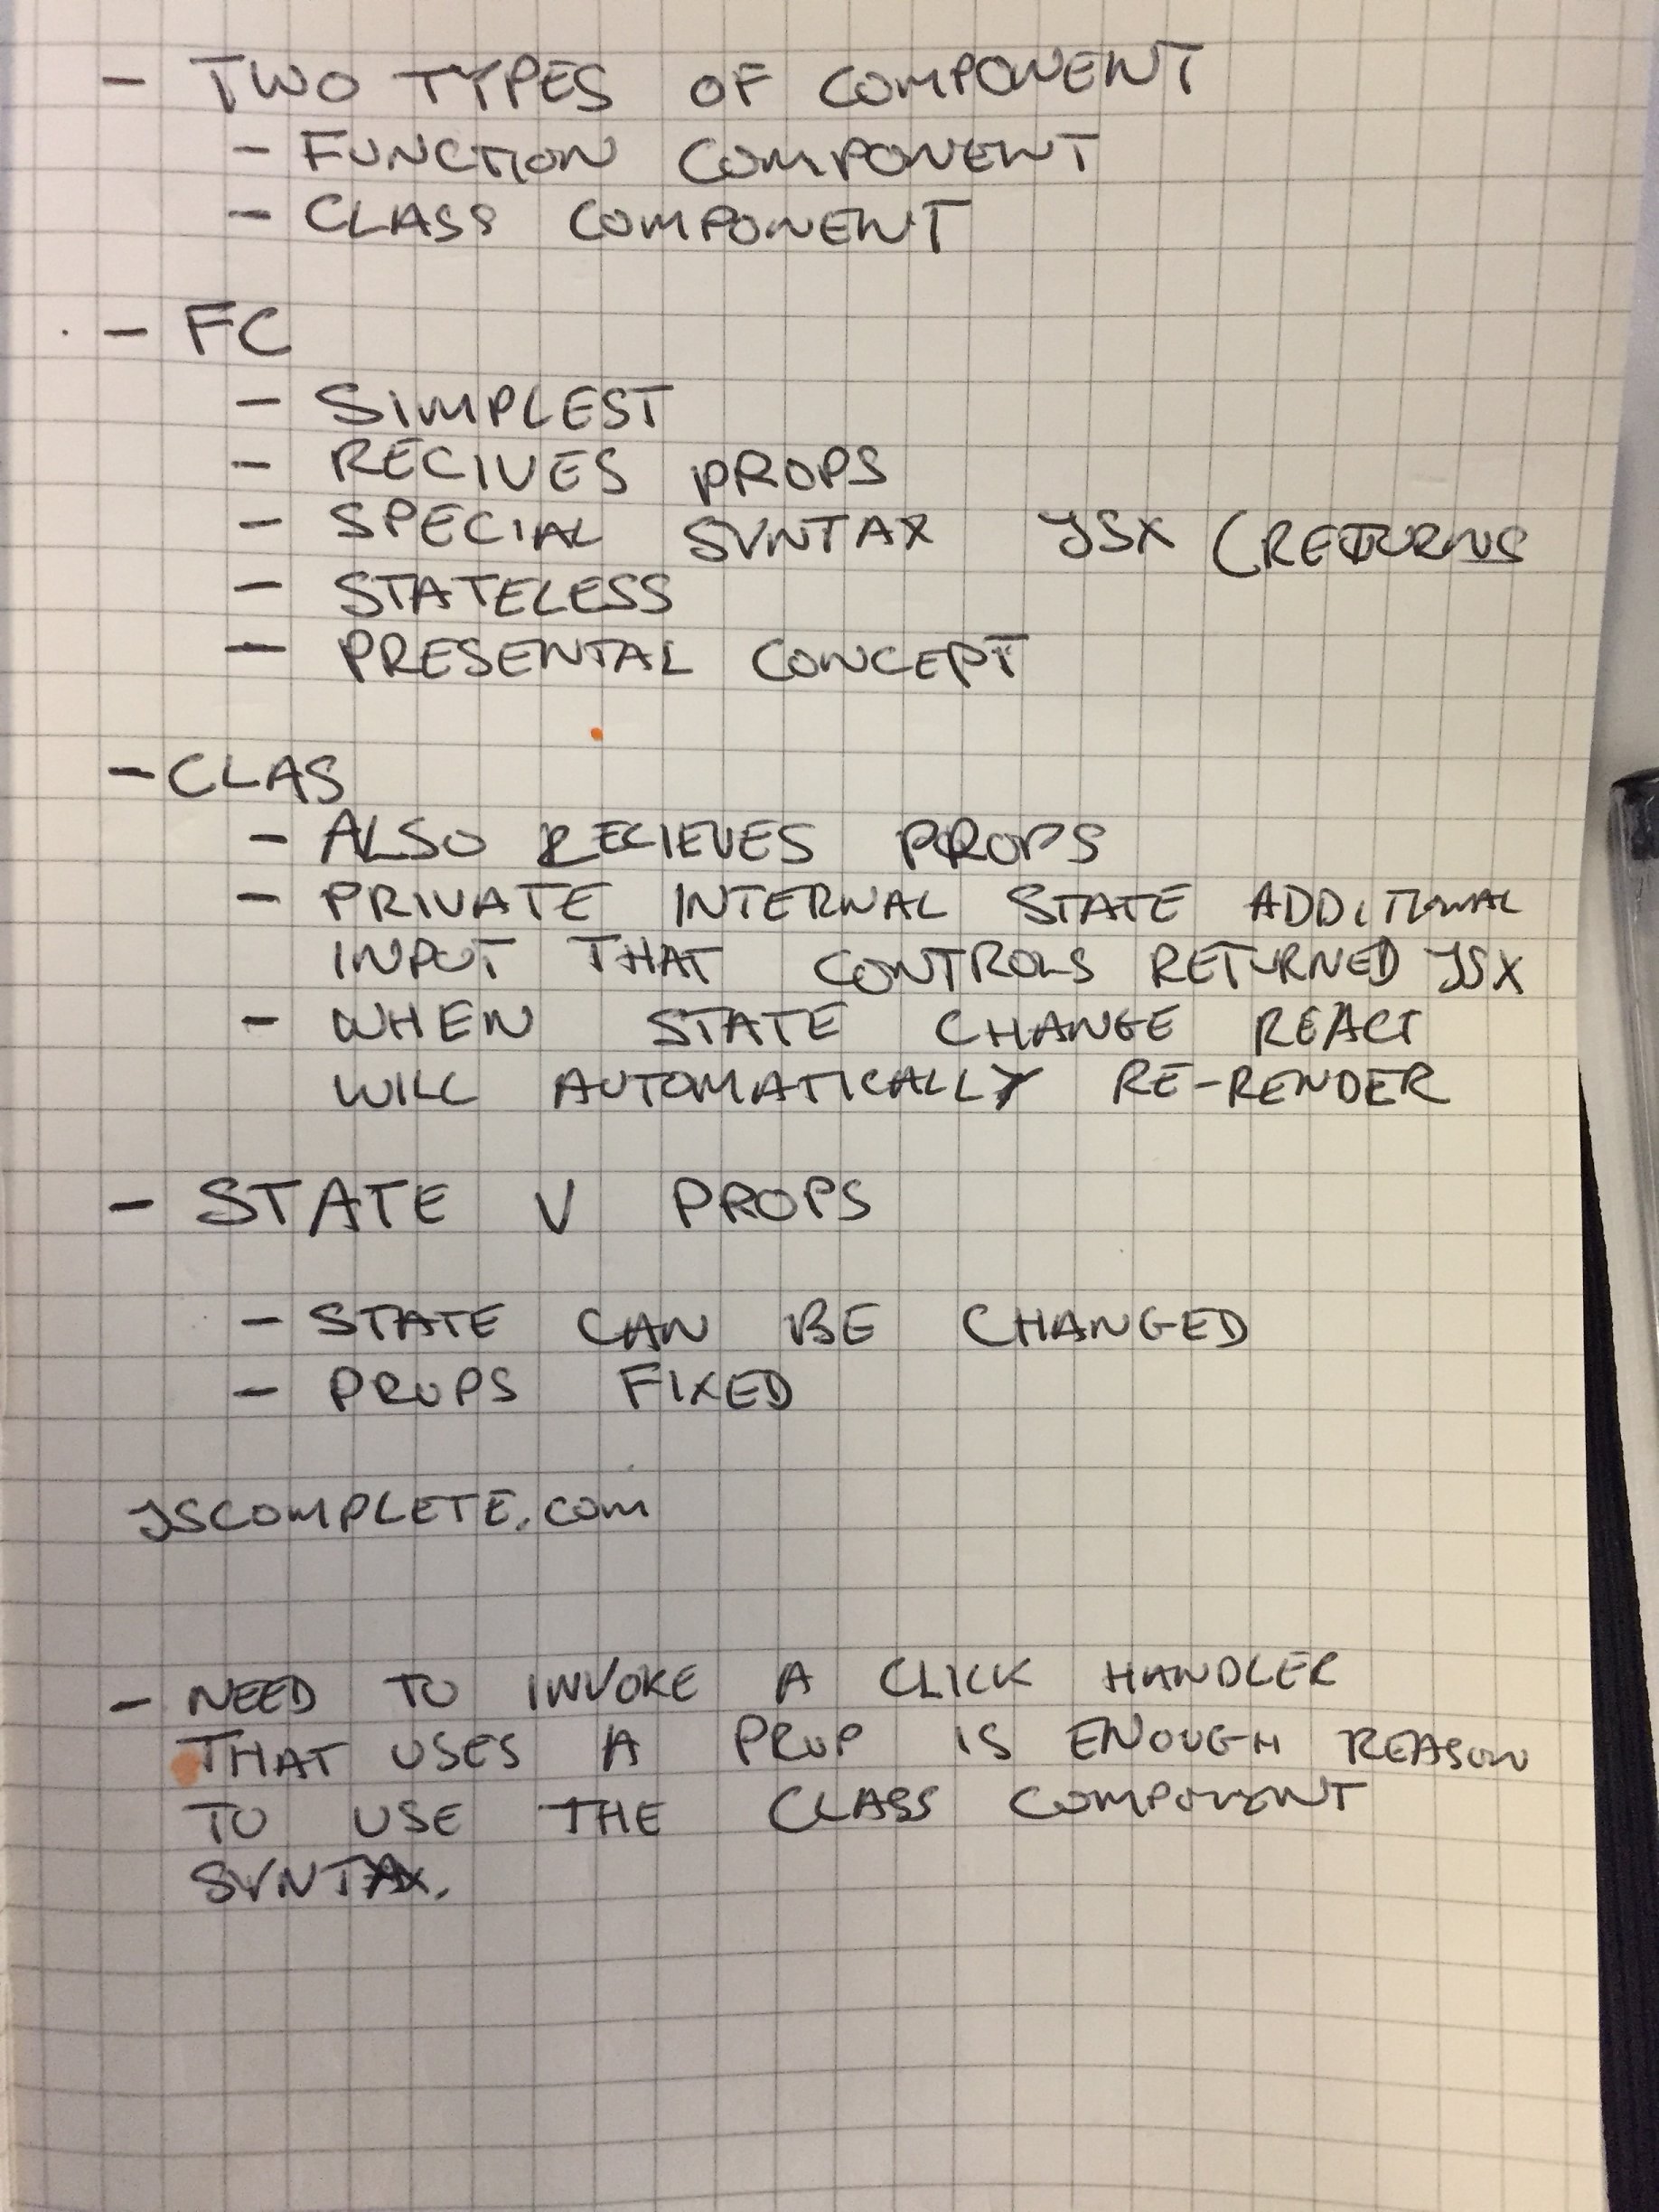 - TWO TYPES OF COMPONENT
- FUNCTION COMPONENT
- CLASS COMPONENT
- FC
- SIMPLEST
- RECIVES PROPS
- SPECIAL SYNTAX JSX (RETURNS
- STATELESS
- PRESENTAL CONCEPT
- CLAS
- ALSO RECIEVES PROPS
- PRIVATE INTERNAL STATE ADDITIONAL
INPUT THAT CONTROLS RETURNED JSX
- WHEN STATE CHANGE REACT
WILL AUTOMATICALLY RE-RENDER
- STATE V PROPS
- STATE CAN BE CHANGED
- PROPS FIXED
JSCOMPLETE.COM
- NEED TO INVOKE A CLICK HANDLER
THAT USES A PROP IS ENOUGH REASON
TO USE THE CLASS COMPONENT
SYNTAX.